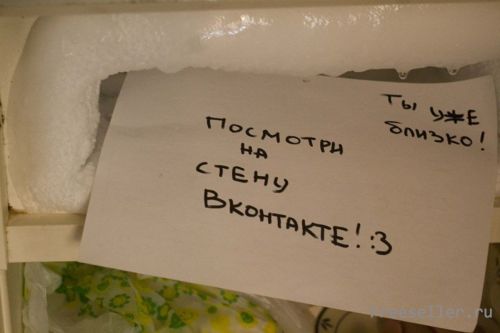 Ты уже
близко!
Посмотри
на
стену
Вконтакте! :3
freeseller.ru